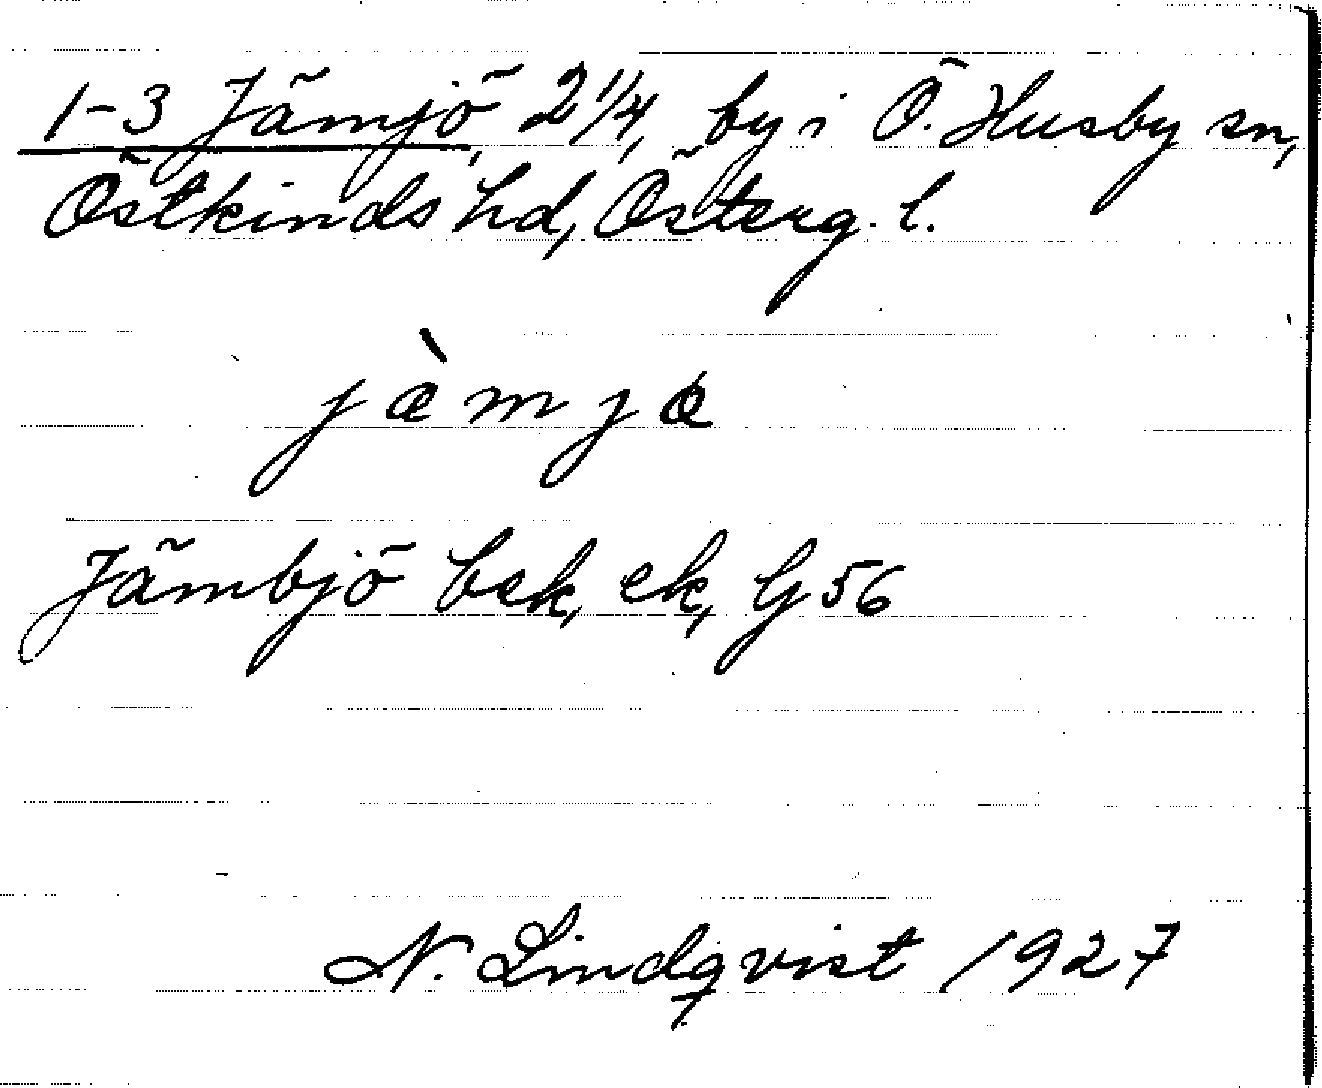 1-3 Jämjö, 2 1/4, by i Ö. Husby sn,
Östkinds hd, Österg. l.
jæ̀mjø
Jämbjö bsk, ek, G 56
N. Lindqvist 1927